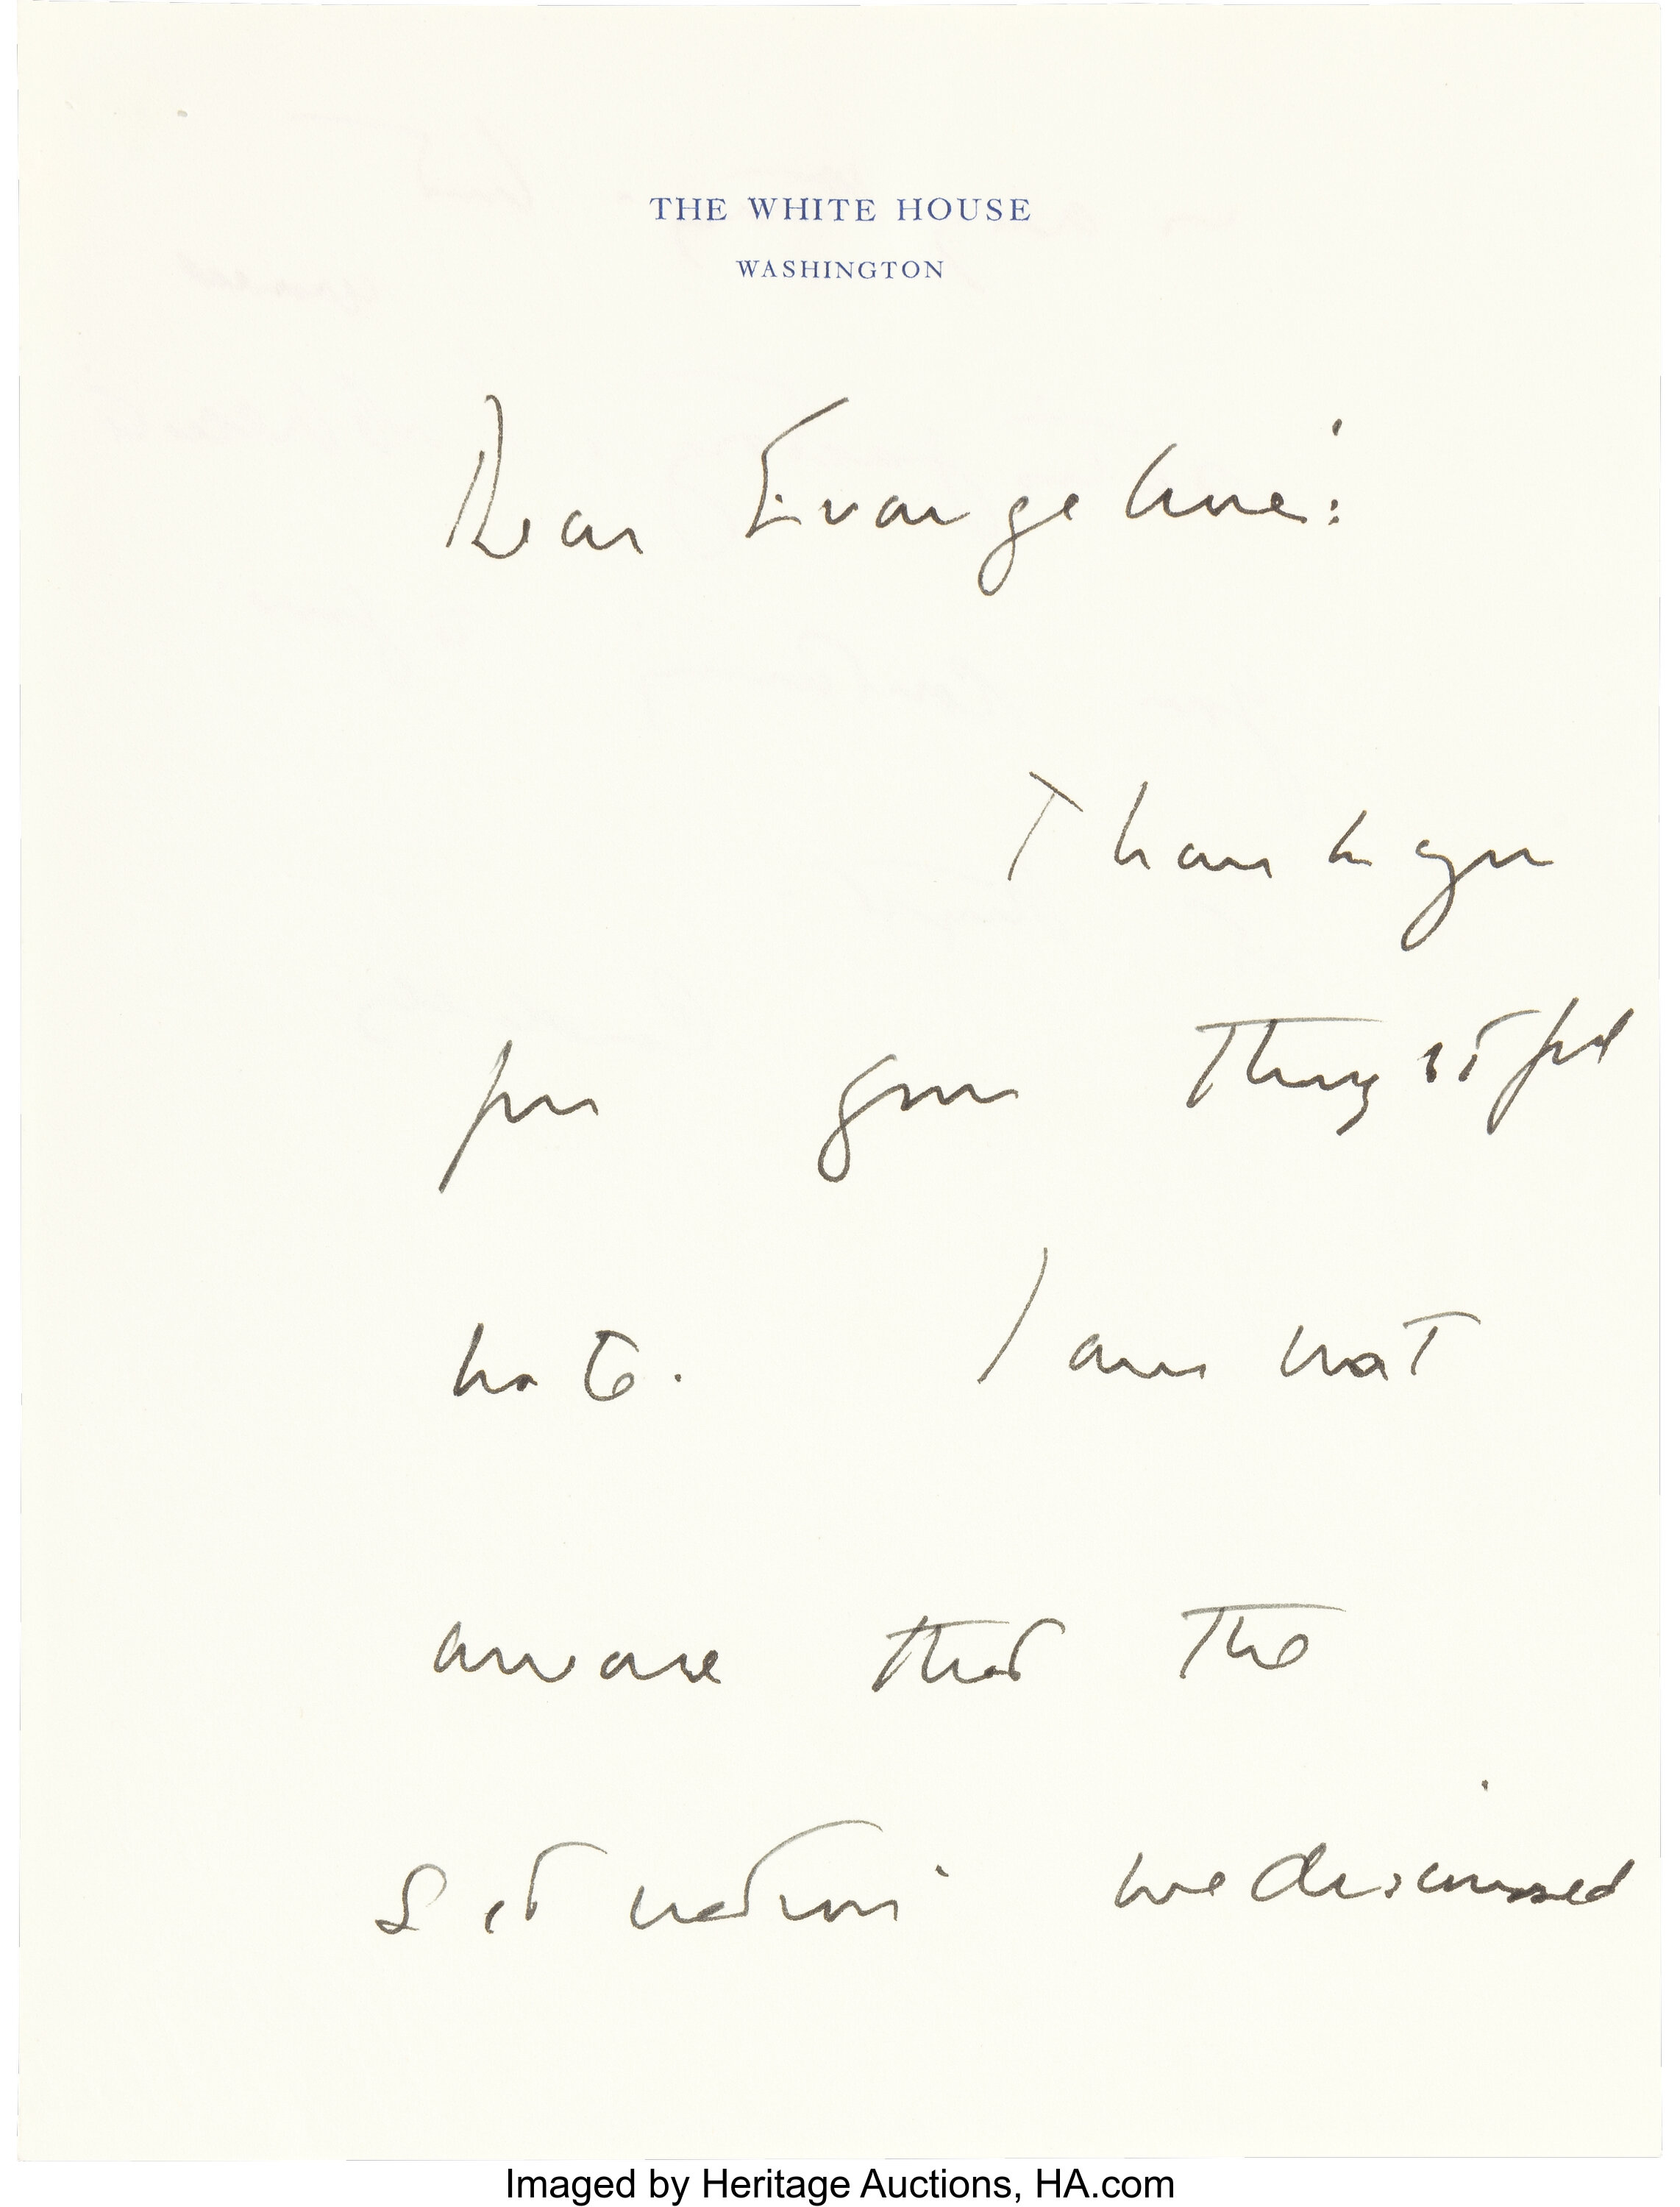 THE WHITE HOUSE
WASHINGTON
Dear Evangeline:
Thank you
for your thoughtful
note. I am not
aware that the
situation we discussed
Imaged by Heritage Auctions, HA.com